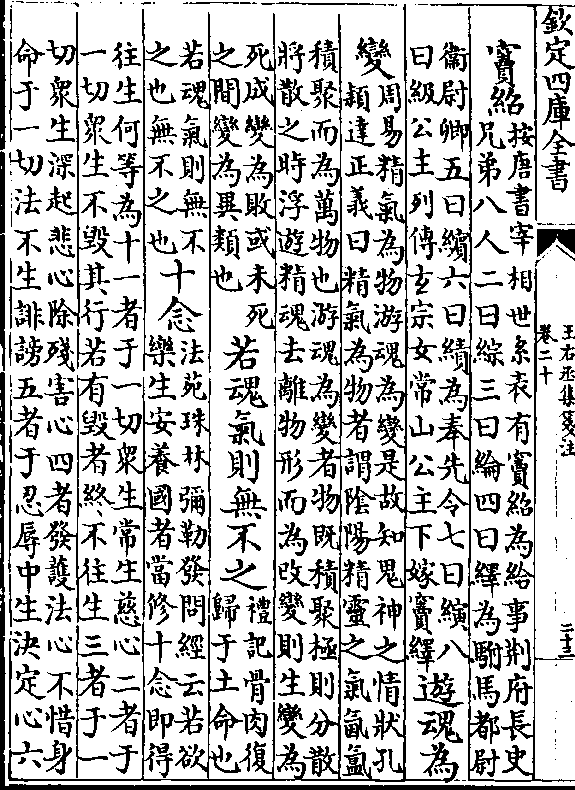 欽定四庫全書
王右丞集箋注
卷二十
二十三
竇紹
按唐書宰相世系表有竇紹為給事荆府長史
兄弟八人二曰綜三曰綸四曰繹為駙馬都尉
衞尉卿五曰纘六曰績為奉先令七曰縯八
曰級公主列傳𤣥宗女常山公主下嫁竇繹
遊魂為
變
周易精氣為物游魂為變是故知鬼神之情狀孔
頴達正義曰精氣為物者謂陰陽精靈之氣氤氲
積聚而為萬物也游魂為變者物既積聚極則分散
將散之時浮遊精魂去離物形而為改變則生變為
死成變為敗或未死
之間變為異類也
若魂氣則無不之
禮記骨肉復
歸于土命也
若魂氣則無不
之也無不之也
十念
法苑珠林彌勒發問經云若欲
樂生安養國者當修十念即得
往生何等為十一者于一切衆生常生慈心二者于
一切衆生不毁其行若有毁者終不往生三者于一
切衆生深起悲心除殘害心四者發護法心不惜身
命于一切法不生誹謗五者于忍辱中生決定心六